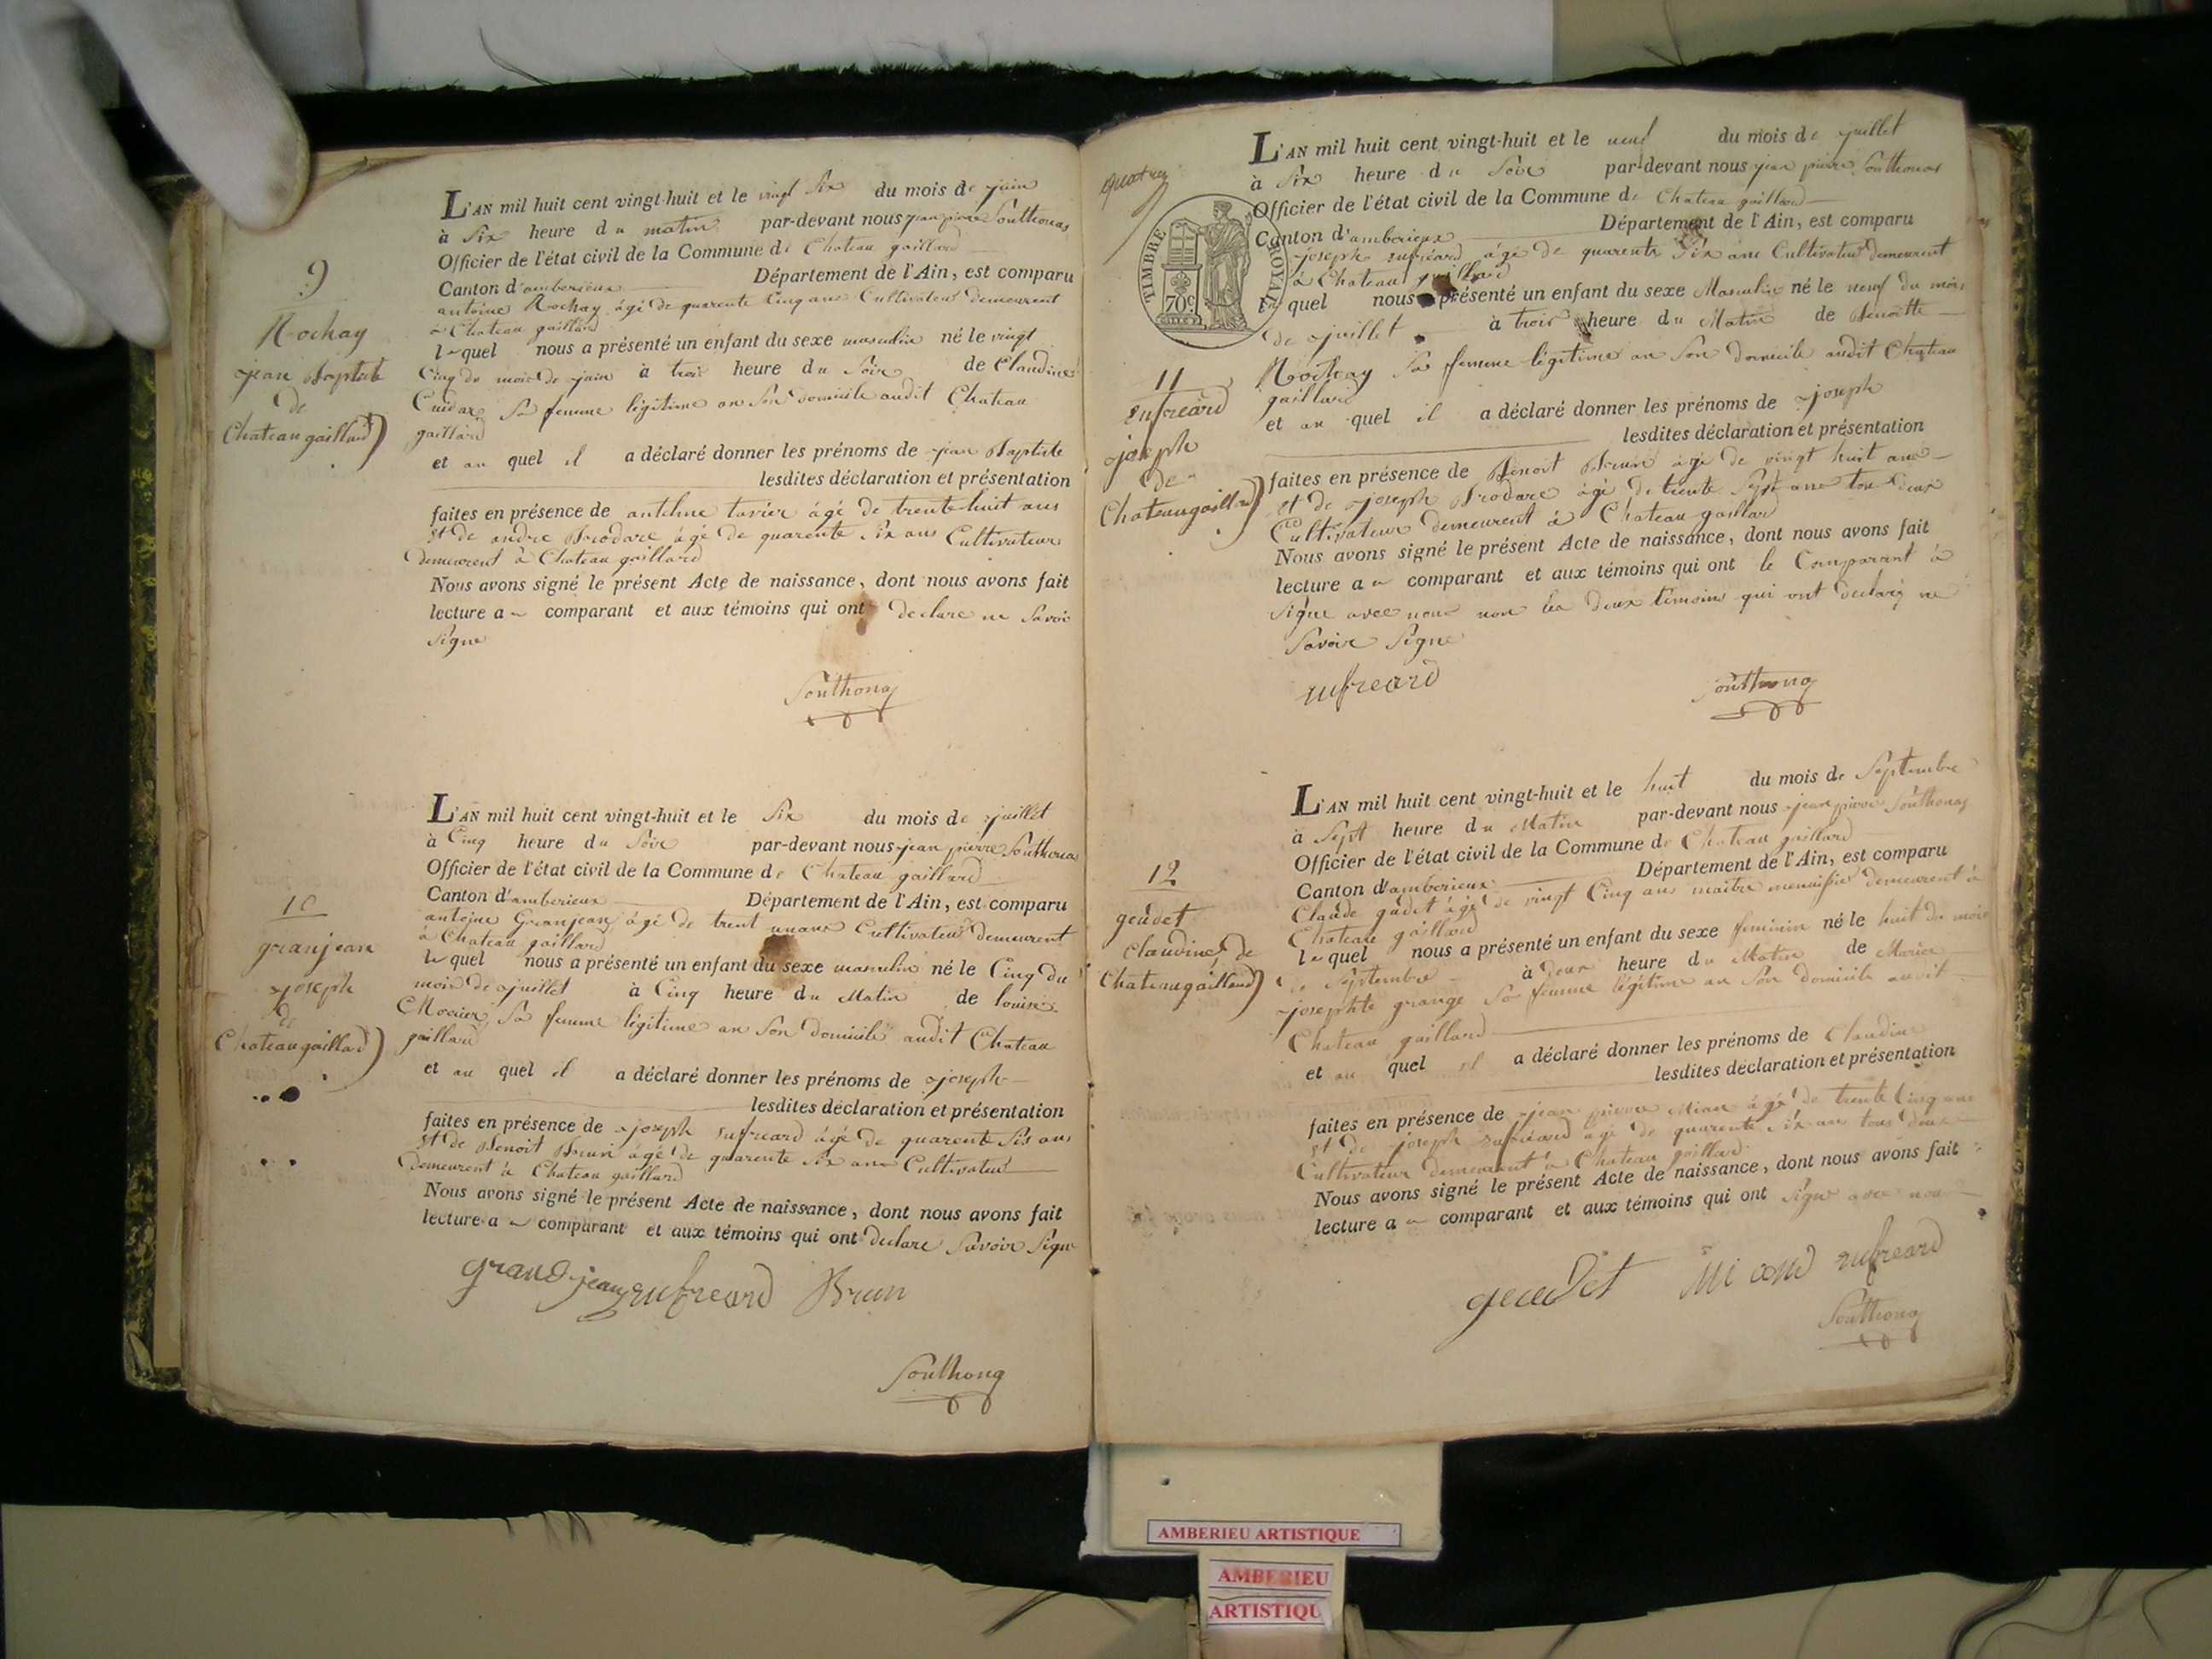 9
Rochay
jean Baptiste
de
Chateaugaillard
L'AN mil huit cent vingt-huit et le vingt six du mois de juin
à six heure du matin par-devant nous jean pierre Southonax
Officier de l'état civil de la Commune de Chateau gaillard
Canton d'amberieux Département de l'Ain, est comparu
antoine Rochay âgé de quarente Cinq ans Cultivateur demeurent
à Chateau gaillard
lequel nous a présenté un enfant du sexe masculin né le vingt
Cinq du mois de juin à trois heure du Soir de Claudine
sa femme légitime an Son domicile audit Chateau
gaillard
et au quel il a déclaré donner les prénoms de jean Baptiste
lesdites déclaration et présentation
faites en présence de antelme tavier âgé de trente huit ans
et de andre Brodare âgé de quarente six ans Cultivateur
demeurent à Chateau gaillard
Nous avons signé le présent Acte de naissance, dont nous avons fait
lecture au comparant et aux témoins qui ont declare ne Savoir
Signe
Southonax
10
granjean
joseph
de
Chateaugaillard
L'AN mil huit cent vingt-huit et le Six du mois de juillet
à Cinq heure du Soir par-devant nous jean pierre Southonax
Officier de l'état civil de la Commune de Chateau gaillard
Canton d'amberieux Département de l'Ain, est comparu
antoine Granjean âgé de trent unans Cultivateur demeurent
à Chateau gaillard
lequel nous a présenté un enfant du sexe masculin né le Cinq du
mois de juillet à Cinq heure du Matin de louise
sa femme légitime an Son domicile audit Chateau
gaillard
et au quel il a déclaré donner les prénoms de joseph
lesdites déclaration et présentation
faites en présence de joseph rufreard âgé de quarente Six ans
et de Benoit Brun âgé de quarente six ans Cultivateur
demeurent à Chateau gaillard
Nous avons signé le présent Acte de naissance, dont nous avons fait
lecture au comparant et aux témoins qui ont declare Savoir Signe
grandjean rufreard Brun
Southonax
TIMBRE ROYAL
70c
11
rufreard
joseph
de
Chateaugaillard
L'AN mil huit cent vingt-huit et le neuf du mois de juillet
à Six heure du Soir par-devant nous jean pierre Southonax
Officier de l'état civil de la Commune de Chateau gaillard
Canton d'amberieux Département de l'Ain, est comparu
joseph rufreard âgé de quarente Six ans Cultivateur demeurent
à Chateau gaillard
lequel nous a présenté un enfant du sexe Masculin né le neuf du mois
de juillet à trois heure du Matin de Benoitte
Rochay Sa femme légitime an Son domicile audit Chateau
gaillard
et au quel il a déclaré donner les prénoms de joseph
lesdites déclaration et présentation
faites en présence de Benoit Brun âgé de vingt huit ans
et de joseph Brodare âgé de trente Sept ans tous deux
Cultivateur demeurent à Chateau gaillard
Nous avons signé le présent Acte de naissance, dont nous avons fait
lecture au comparant et aux témoins qui ont le Comparant à
Signe avec nous non les deux témoins qui ont declaré ne
Savoir Signe
rufreard Southonax
12
geudet
Claudine de
Chateaugaillard
L'AN mil huit cent vingt-huit et le huit du mois de Septembre
à Sept heure du Matin par-devant nous jean pierre Southonax
Officier de l'état civil de la Commune de Chateau gaillard
Canton d'amberieux Département de l'Ain, est comparu
Claude gudet âgé de vingt Cinq ans maitre menuisier demeurent à
Chateau gaillard
lequel nous a présenté un enfant du sexe feminin né le huit du mois
de Septembre à deux heure du Matin de Marie
josephte grange Sa femme légitime an Son domicile audit
Chateau gaillard
et au quel il a déclaré donner les prénoms de Claudine
lesdites déclaration et présentation
faites en présence de jean pierre âgé de trente Cinq ans
et de joseph rufreard âgé de quarente Six ans tous deux
Cultivateur demeurent à Chateau gaillard
Nous avons signé le présent Acte de naissance, dont nous avons fait
lecture au comparant et aux témoins qui ont Signe avec nous
geudet rufreard
Southonax
AMBERIEU ARTISTIQUE
AMBERIEU
ARTISTIQU